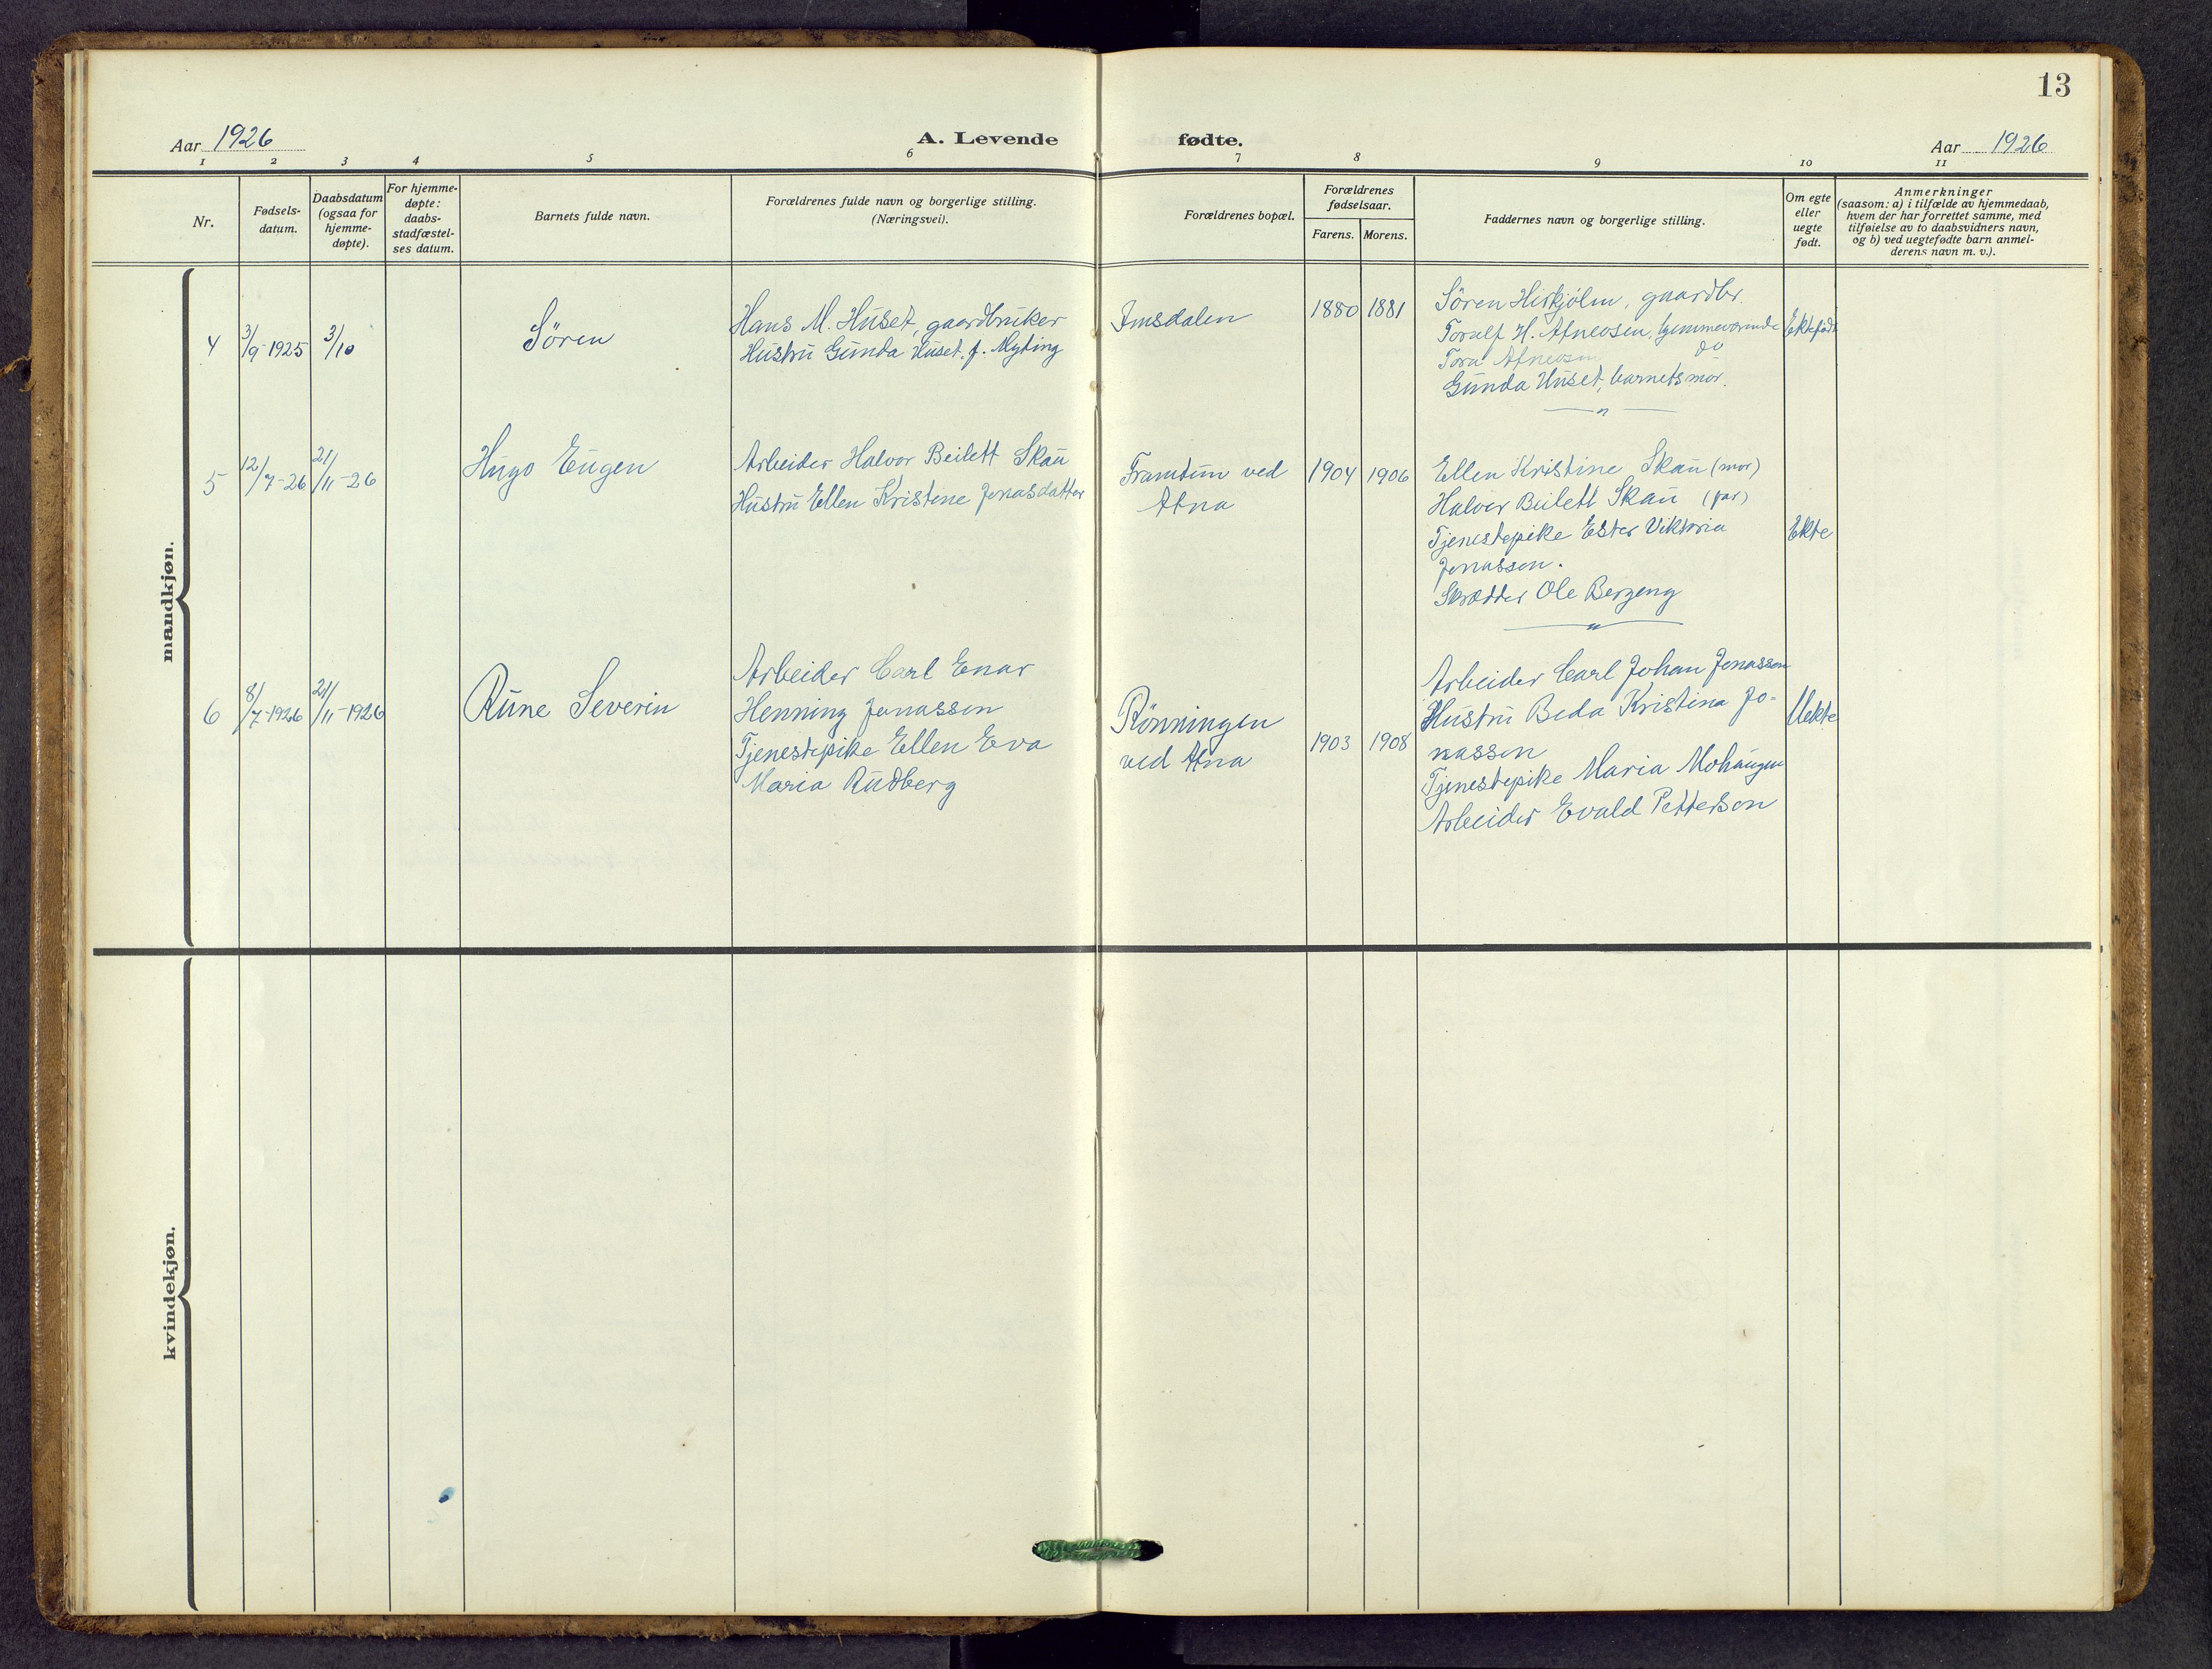 13
Aar 1926
A. Levende fødte.
Aar 1926
1 2 3 4 5 6 7 8 9 10 11
Nr.
Fødsels-
datum.
Daabsdatum
(ogsaa for
hjemme-
døpte).
For hjemme-
døpte:
daabs-
stadfæstel-
ses datum.
Barnets fulde navn.
Forældrenes fulde navn og borgerlige stilling.
(Næringsvei).
Forældrenes bopæl.
Forældrenes
fødselsaar.
Farens. Morens.
Faddernes navn og borgerlige stilling.
Om egte
eller
uegte
født.
Anmerkninger
(saasom: a) i tilfælde av hjemmedaab,
hvem der har forrettet samme, med
tilføielse av to daabsvidners navn,
og b) ved uegtefødte barn anmel-
derens navn m. v.).
mandkjøn.
4
3/9-1925
3/10
Sören
Hans M. Huset, gaardbruker
Hustru Gunda Huset, f. Myting
Imsdalen
1880 1881
Sören Hirkjölen, gaardbr.
Toralf H. Atneosen, hjemmeværende
Tora Atneosen do
Gunda Huset, barnets mor.
Ektefødt
5
12/7-26
21/11-26
Hugo Eugen
Arbeider Halvor Beilett Skau
Hustru Ellen Kristine Jonasdatter
Framtun ved
Atna
1904 1906
Ellen Kristine Skau (mor)
Halvor Beilett Skau (far)
Tjenestepike Ester Viktoria
Jonassen.
Skrædder Ole Bergeng
Ekte
6
8/7-1926
21/11-1926
Rune Severin
Arbeider Carl Enar
Henning Jonassen
Tjenestepike Ellen Eva
Maria Rudberg
Rönningen
ved Atna
1903 1908
Arbeider Carl Johan Jonassen
Hustru Beda Kristina Jo-
nassen
Tjenestepike Maria Mohaugen
Arbeider Evald Petterson
Uekte
kvindekjøn.